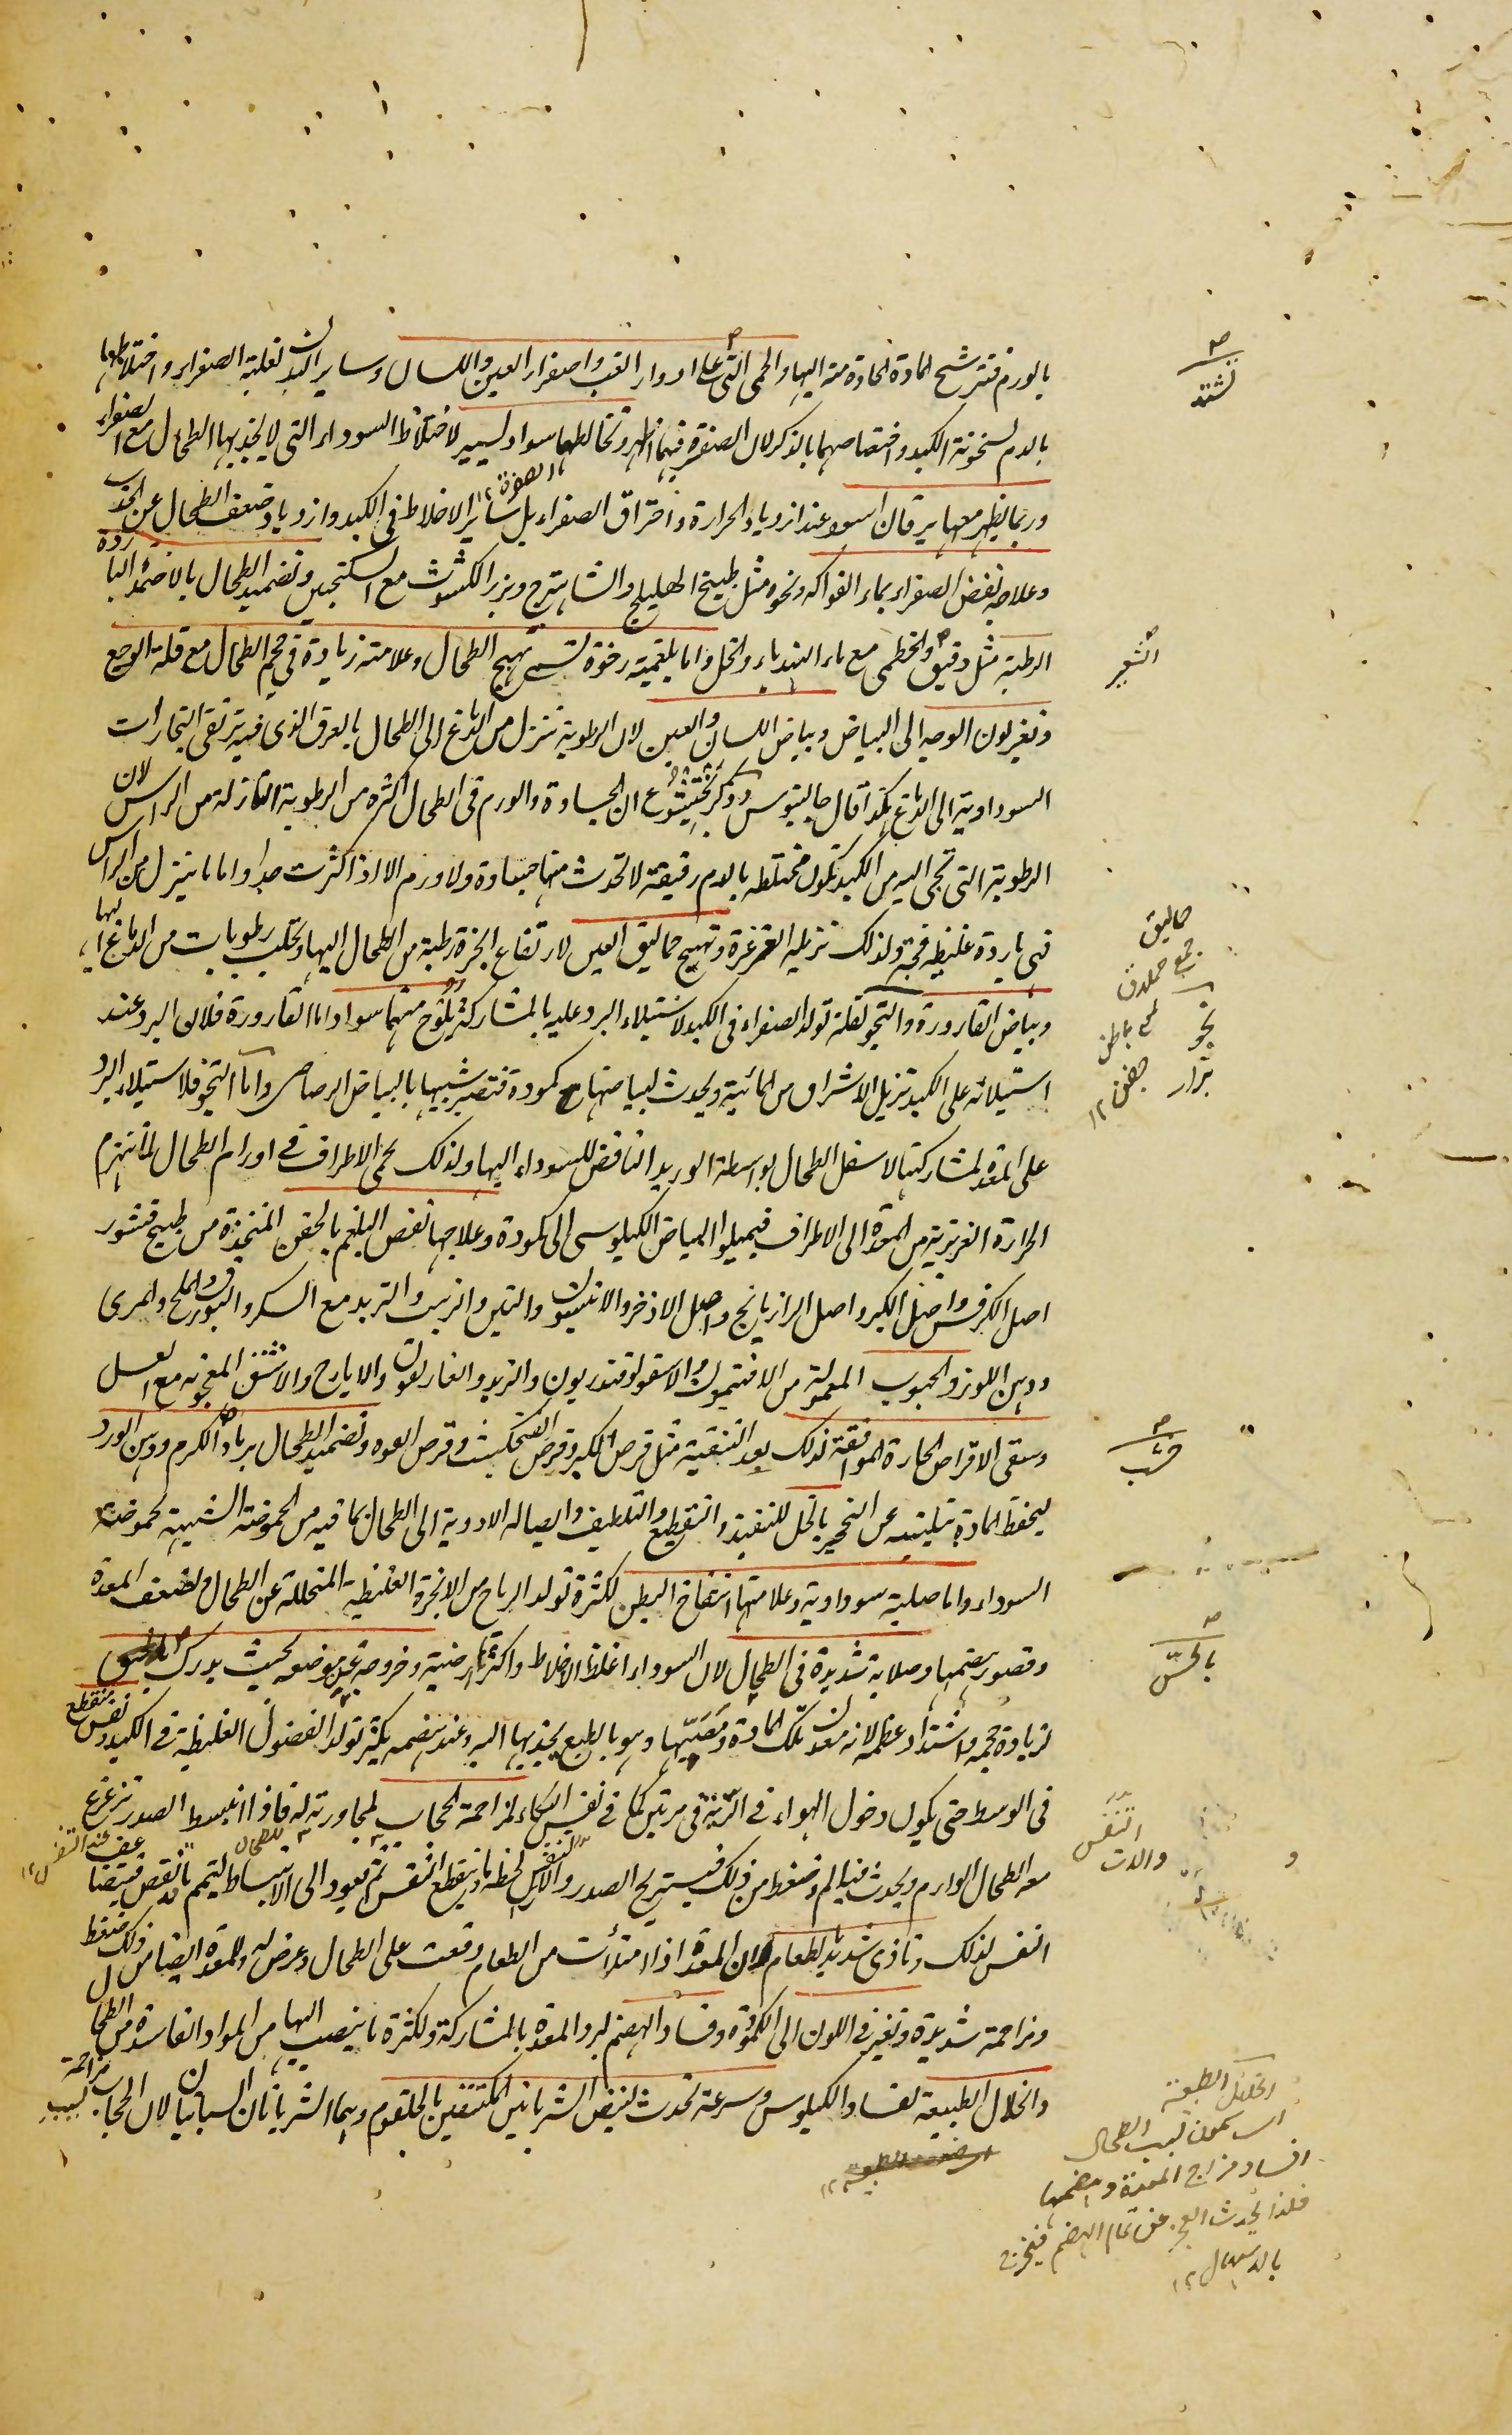 بالورم فتترشح المادة الحادة منه اليها والحمى التى على ادوار الغب واصفرار العين واللسان وساير البدن لغلبة الصفراء واختلاطها
بالدم لسخونة الكبد واختصاصهما بالذكر لان الصفرة فيهما اظهر وتخالطها سواد يسير لاختلاط السوداء التى لا يجذبها الطحال مع الصفراء
وربما يظهر معها يرقان اسود عند ازدياد الحرارة واحتراق الصفراء بل ساير الاخلاط فى الكبد وازدياد ضعف الطحال عن الجذب
وعلاجه نفض الصفراء بماء الفواكه ونحوه مثل طبيخ الهليلج والشاهترج وبزر الكشوث مع السكنجبين وتضميد الطحال بالاضمدة الباردة
الرطبة مثل دقيق والخطمى مع ماء الهندباء والخل واما بلغمية رخوة تسمى تهيج الطحال وعلامته زيادة فى حجم الطحال مع قلة الوجع
وتغير لون الوجه الى البياض وبياض اللسان والعين لان الرطوبة تنزل من الدماغ الى الطحال بالعرق الذى فيه ترتقى البخارات
السوداوية الى الدماغ هكذا قال جالينوس وذكر بختيشوع ان الجساوة والورم فى الطحال اكثره من الرطوبة النازلة من الراس لان
الرطوبة التى تجى اليه من الكبد تكون مختلطه بالدم رقيقة لا تحدث منها جساوة ولا ورم الا اذا كثرت جدا واما ما ينزل من الراس
فهى باردة غليظه فجة ولذلك تزيله الغرغرة وتهيج حماليق العين لارتفاع ابخرة رطبة من الطحال اليها وتحلب رطوبات من الدماغ اليها
وبياض القارورة والنجو لقلة تولد الصفراء فى الكبد لاستيلاء البرد عليه بالمشاركة يلوح منهما سواد اما القارورة فلان البرد عند
استيلائه على الكبد تزيل الاشراق من المائية ويحدث لبياضها كمودة فتصير شبيها بالبياض الرصاصى واما النجو فلاستيلاء البرد
على المعدة لمشاركتها لاسفل الطحال بواسطة الوريد النافض للسوداء اليها ولذلك تحمى الاطراف فى اورام الطحال لما تنهزم
الحرارة الغريزية من المعدة الى الاطراف فيميل البياض الكيلوسى الى كمودة وعلاجها نفض البلغم بالحقن المتخذة من طبيخ قشور
اصل الكرفس واصل الكبر واصل الرازيانج واصل الاذخر والانيسون والتين والزبيب والتربد مع السكر والبورق والملح والمرى
ودهن اللوز والحبوب المعمولة من الافتيمون والاسقولوقندريون والتربد والغاريقون والايارج والاشق المعجونه مع العسل
وسقى الاقراص الحارة الموافقة لذلك بعد التنقية مثل قرص الكبر وقرص الفنجنكشت وقرص الفوه وتضميد الطحال برماد الكرم ودهن الورد
ليحفظ المادة بتليينه عن التحجر بالخل للتنفيذ والتقطيع والتلطيف وايصاله الادوية الى الطحال بما فيه من الحموضة الشبيهة بحموضة
السوداء واما صلبة سوداوية وعلامتها انتفاخ البطن لكثرة تولد الرياح من الابخرة الغليظة المتحللة عن الطحال ولضعف المعدة
وقصور هضمها وصلابة شديدة فى الطحال لان السوداء اغلظ الاخلاط واكثرها ارضية وخروجه عن موضعه بحيث يدرك
لزيادة حجمه واشتداد عظمه لانه معدن تلك المادة ومصبها وهو بالطبع يجذبها اليه وعند هضمه يكثر تولد الفضول الغليظة فى الكبد ونفس منقطع
فى الوسط حتى يكون دخول الهواء فى الرية فى مرتين كما فى نفس البكاء لمزاحمة الحجاب لمجاورته له فاذا انبسط الصدر تزعزع
معه الطحال الوارم ويحدث فيه الم وضغط من ذلك فيستريح الصدر والاتى لحظة وينقطع التنفس ثم يعود الى الانبساط ليتمم ما نقص
النفس لذلك وتاذى شديد لطعام لان المعدة اذا امتلأت من الطعام وقعت على الطحال وعرض له وللمعدة ايضا من ذلك ضغط
ومزاحمة شديدة وتغير فى اللون الى الكمودة وفساد الهضم لبرد المعدة بالمشاركة ولكثرة ما ينصب اليها من المواد الفاسدة من الطحال
وانحلال الطبيعة لفساد الكيلوس وسرعة تحدث لنبض الشريانين المكتنفين بالحلقوم وهما الشريانان السباتيان لان الحجاب بسبب مزاحمة
تشتد
الشعير
حماليق
جمع حملاق
باطن
جفن ١٢
نجو
براز
بالحس
التنفس
والات
انحلال الطبيعة
بسبب الطحال
افساد مزاج المعدة وهضمها
فلذا يحدث العجز عن تمام الهضم فيخرج
بالاسهال ١٢